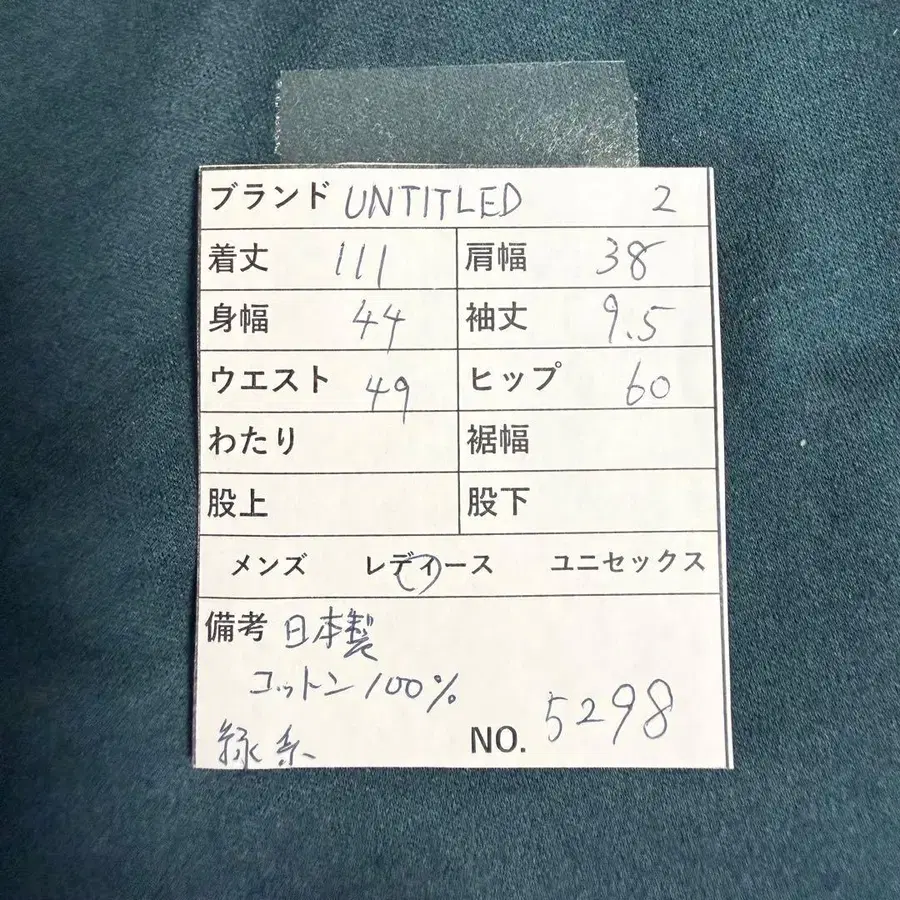 ブランド UNTITLED 2
着丈 111 肩幅 38
身幅 44 袖丈 9.5
ウエスト 49 ヒップ 60
わたり 裾幅
股上 股下
メンズ レディース ユニセックス
備考 日本製
コットン100%
緑系 NO. 5298